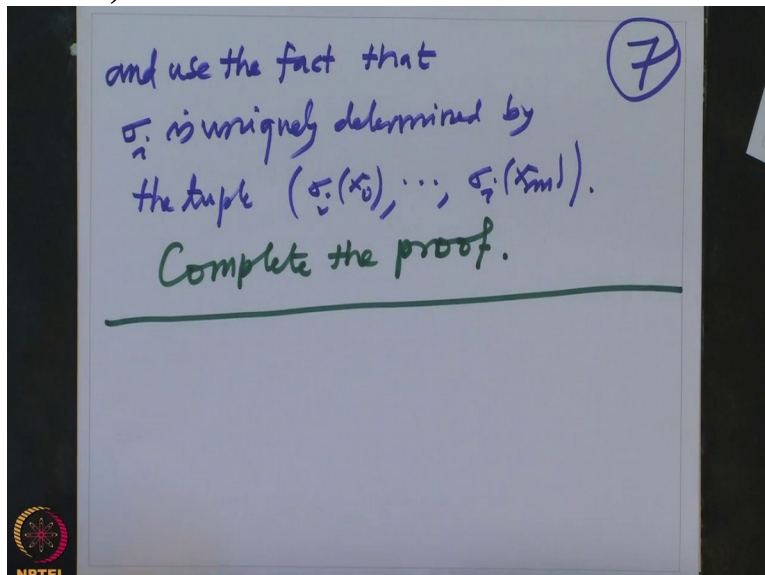 and use the fact that
7
σᵢ is uniquely determined by
the tuple (σᵢ(x₀), ⋯, σᵢ(xₘ)).
Complete the proof.
NPTEL